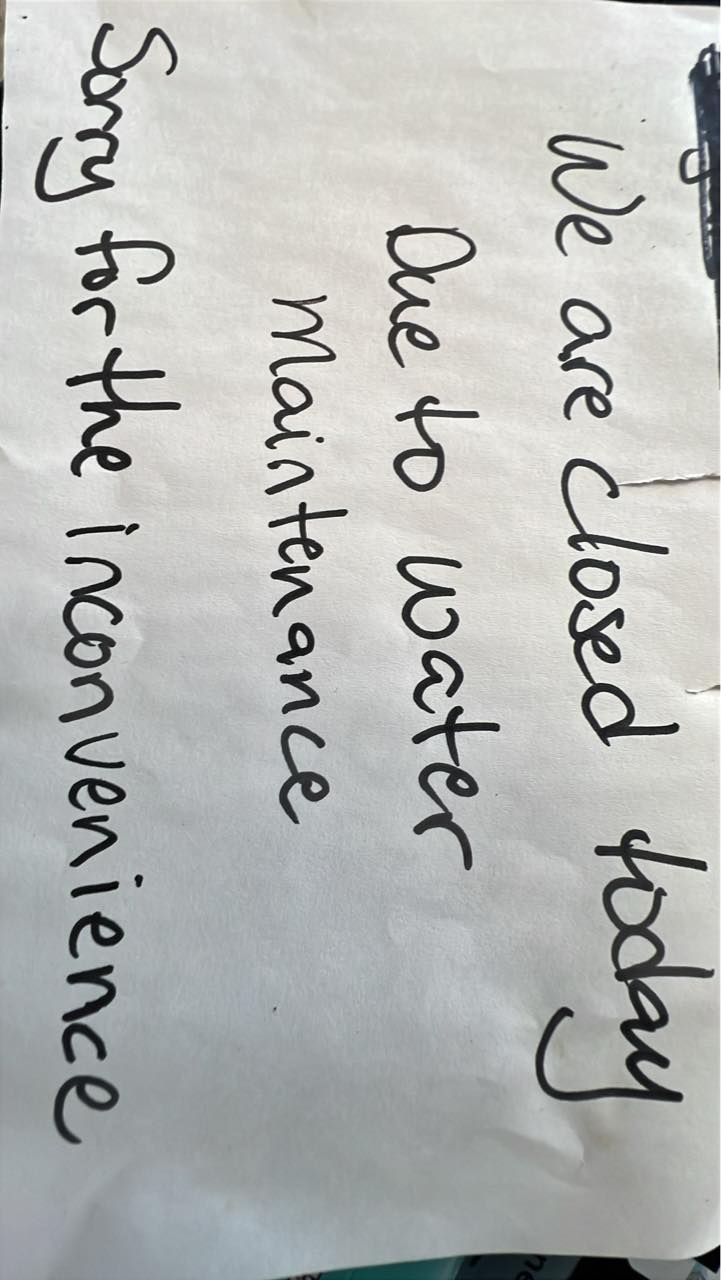 We are closed today
Due to water
Maintenance
Sorry for the inconvenience